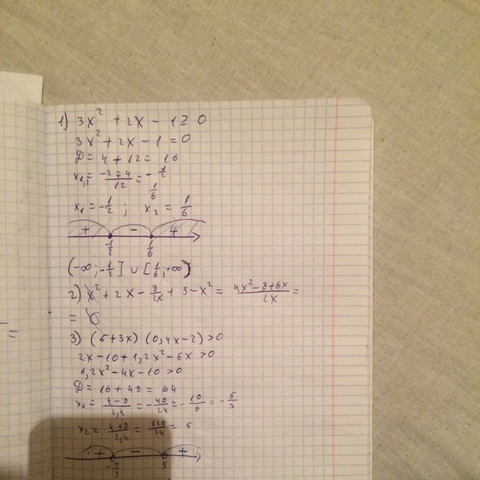 1) 3x² + 2x - 1 ≥ 0
3x² + 2x - 1 = 0
D = 4 + 12 = 16
x₁,₂ = (-2 ± 4)/12 =
1/6
x₁ = -1/2 ; x₂ = 1/6
+ - +
-1/2 1/6
(-∞; -1/2] ∪ [1/6; +∞)
2) x² + 2x - 8/2x + 3 - x² = (4x² - 8 + 6x)/2x =
=
3) (5+3x) (0,4x-2) > 0
2x - 10 + 1,2x² - 6x > 0
1,2x² - 4x - 10 > 0
D = 16 + 48 = 64
x₁ = (4-8)/2,4 = -40/24 = -10/6 = -5/3
x₂ = (4+8)/2,4 = 120/24 = 5
+ - +
-5/3 5
=